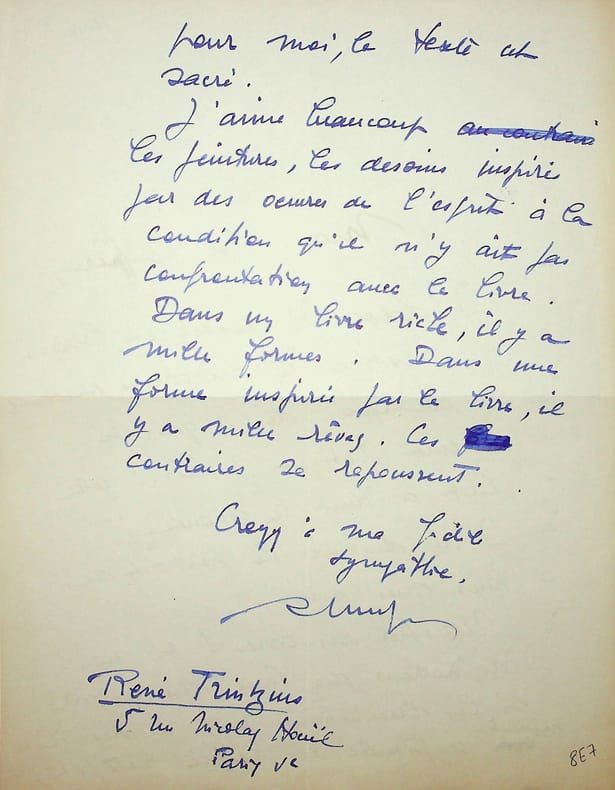 pour moi, le texte est
sacré.
J'aime beaucoup au contraire
les peintures, les dessins inspirés
par des oeuvres de l'esprit à la
condition qu'il n'y ait pas
confrontation avec le livre.
Dans un livre riche, il y a
mille formes. Dans une
forme inspirée par le livre, il
y a mille rêves. Ces
contraires se repoussent.
Croyez à ma fidèle
sympathie.
René Trintzius
5 rue Nicolas Houël
Paris Ve
8E7